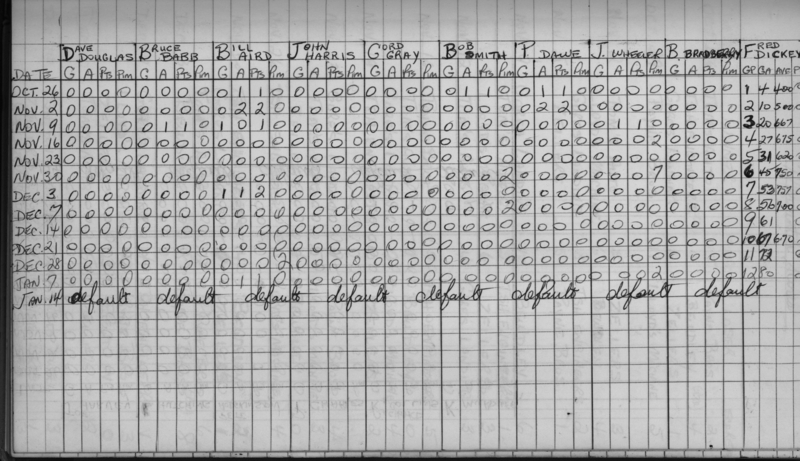 DAVE DOUGLAS BRUCE BABB BILL AIRD JOHN HARRIS GORD GRAY BOB SMITH P. DAWE J. WHEELER B. BRADBERRY FRED DICKEY
DATE G A Pts Pim G A Pts Pim G A Pts Pim G A Pts Pim G A Pts Pim G A Pts Pim G A Pts Pim G A Pts Pim G A Pts Pim GP GA AVE P
OCT. 26 0 0 0 0 0 0 0 0 0 1 1 0 0 0 0 0 0 0 0 0 0 1 1 0 0 1 1 0 0 0 0 0 0 0 0 0 1 4 400
NOV. 2 0 0 0 0 0 0 0 0 0 2 2 0 0 0 0 0 0 0 0 0 0 0 0 0 0 2 2 0 0 0 0 0 0 0 0 0 2 10 500
NOV. 9 0 0 0 0 0 1 1 0 1 0 1 0 0 0 0 0 0 0 0 0 0 0 0 0 0 0 0 0 0 1 1 0 0 0 0 0 3 20 667
NOV. 16 0 0 0 0 0 0 0 0 0 0 0 0 0 0 0 0 0 0 0 0 0 0 0 0 0 0 0 0 0 0 0 2 0 0 0 0 4 27 675
NOV. 23 0 0 0 0 0 0 0 0 0 0 0 0 0 0 0 0 0 0 0 0 0 0 0 0 0 0 0 0 0 0 0 0 0 0 0 0 5 31 620
NOV. 30 0 0 0 0 0 0 0 0 0 0 0 0 0 0 0 0 0 0 0 0 0 0 0 2 0 0 0 0 0 0 0 7 0 0 0 0 6 45 750
DEC. 3 0 0 0 0 0 0 0 0 1 1 2 0 0 0 0 0 0 0 0 0 0 0 0 0 0 0 0 0 0 0 0 0 0 0 0 0 7 53 757
DEC. 7 0 0 0 0 0 0 0 0 0 0 0 0 0 0 0 0 0 0 0 0 0 0 0 2 0 0 0 0 0 0 0 0 0 0 0 0 8 56 700
DEC. 14 0 0 0 0 0 0 0 0 0 0 0 0 0 0 0 0 0 0 0 0 0 0 0 0 0 0 0 0 0 0 0 0 0 0 0 0 9 61
DEC. 21 0 0 0 0 0 0 0 0 0 0 0 0 0 0 0 0 0 0 0 0 0 0 0 0 0 0 0 0 0 0 0 0 0 0 0 0 10 67 670
DEC. 28 0 0 0 0 0 0 0 0 0 0 0 2 0 0 0 0 0 0 0 0 0 0 0 0 0 0 0 0 0 0 0 0 0 0 0 0 11 72
JAN. 7 0 0 0 0 0 0 0 0 0 1 1 0 0 0 0 0 0 0 0 0 0 0 0 0 0 0 0 0 0 0 0 2 0 0 0 0 12 80
JAN. 14 default default default default default default default default